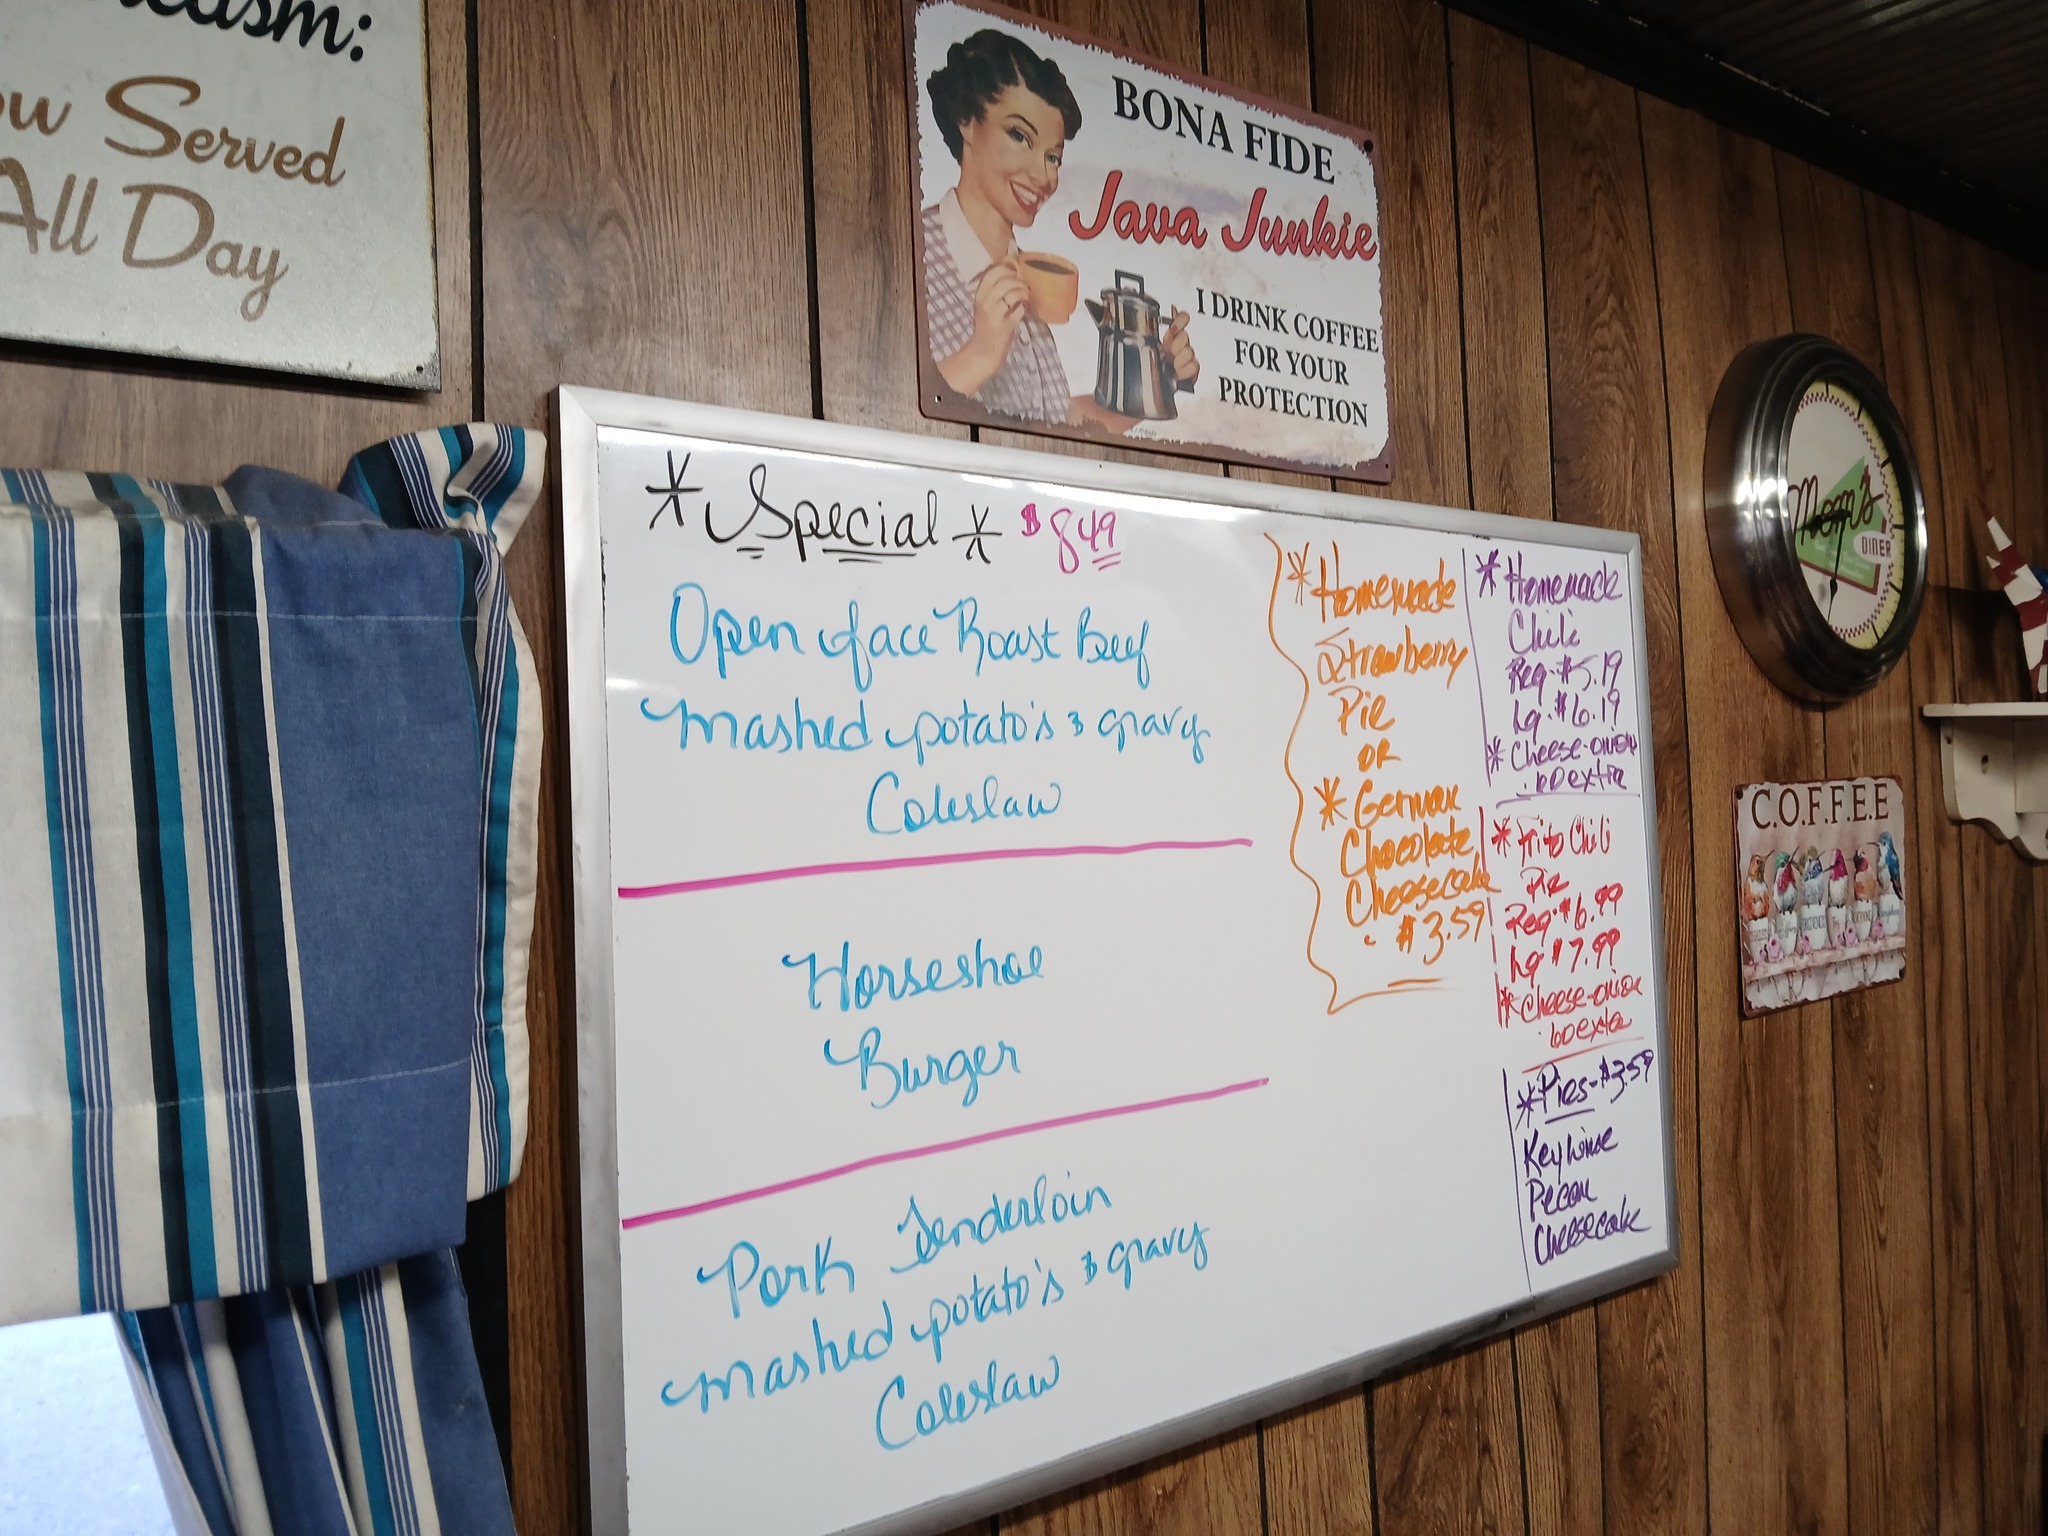 asm:
Served
All Day
BONA FIDE
Java Junkie
I DRINK COFFEE
FOR YOUR
PROTECTION
* Special * $8.49
Open face Roast Beef
Mashed potato's & gravy
Coleslaw
Horseshoe
Burger
Pork Tenderloin
Mashed potato's & gravy
Coleslaw
* Homemade
Strawberry
Pie
OR
* German
Chocolate
Cheesecake
$3.59
* Homemade
Chili
Reg. $5.19
Lg. $6.19
* Cheese-onion
.60 extra
* Frito Chili
Pie
Reg. $6.99
Lg. $7.99
* Cheese-onion
.60 extra
* Pies-$3.59
Keylime
Pecan
Cheesecake
Mom's
DINER
C.O.F.F.E.E